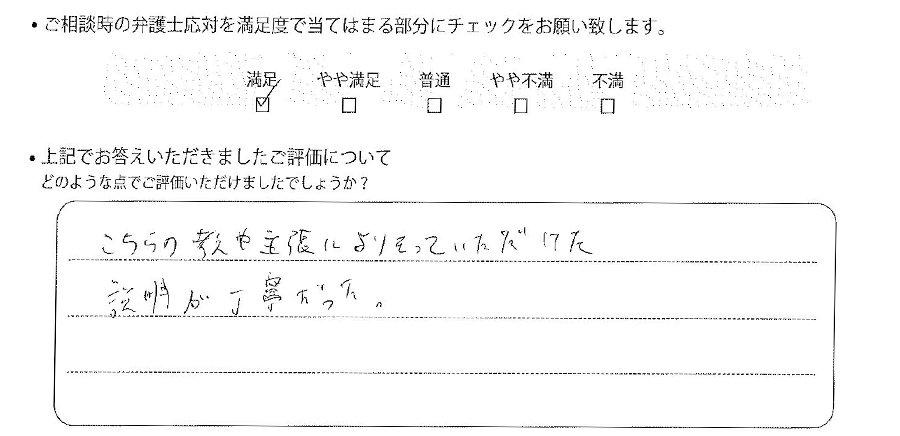 ・ご相談時の弁護士応対を満足度で当てはまる部分にチェックをお願い致します。
満足 やや満足 普通 やや不満 不満
・上記でお答えいただきましたご評価について
どのような点でご評価いただけましたでしょうか？
こちらの考えや主張によりそっていただけた
説明が丁寧だった。